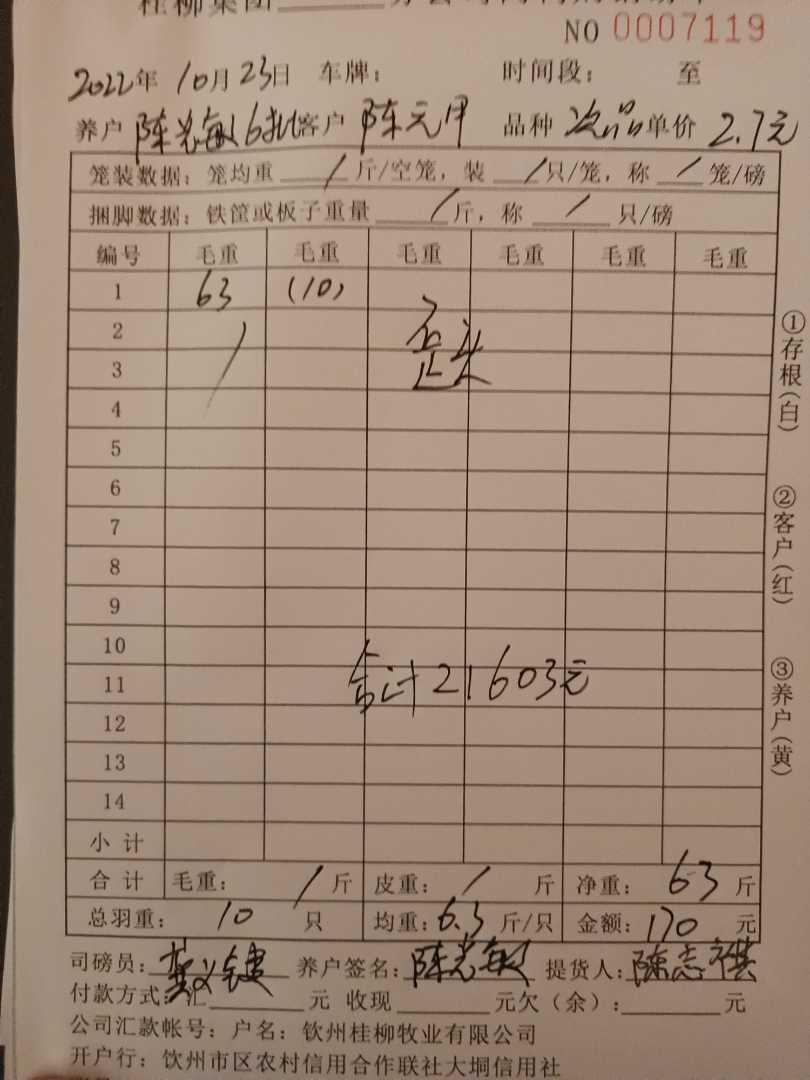 桂柳集团
NO 0007119
2022年 10月23日 车牌： 时间段： 至
养户 陈光敏6批 客户 陈元甲 品种 次品 单价 2.7元
笼装数据：笼均重 / 斤/空笼，装 / 只/笼，称 / 笼/磅
捆脚数据：铁筐或板子重量 / 斤，称 / 只/磅
编号 毛重 毛重 毛重 毛重 毛重 毛重
1 63 (10)
2 /
3 歪头
4
5
6
7
8
9
10
11 合计21603元
12
13
14
小计
合计 毛重： / 斤 皮重： / 斤 净重： 63 斤
总羽重： 10 只 均重：6.3 斤/只 金额：170 元
司磅员： 养户签名：陈光敏 提货人：陈志祺
付款方式：汇 元 收现 元欠（余）： 元
公司汇款帐号：户名：钦州桂柳牧业有限公司
开户行：饮州市区农村信用合作联社大垌信用社
①存根（白）
②客户（红）
③养户（黄）